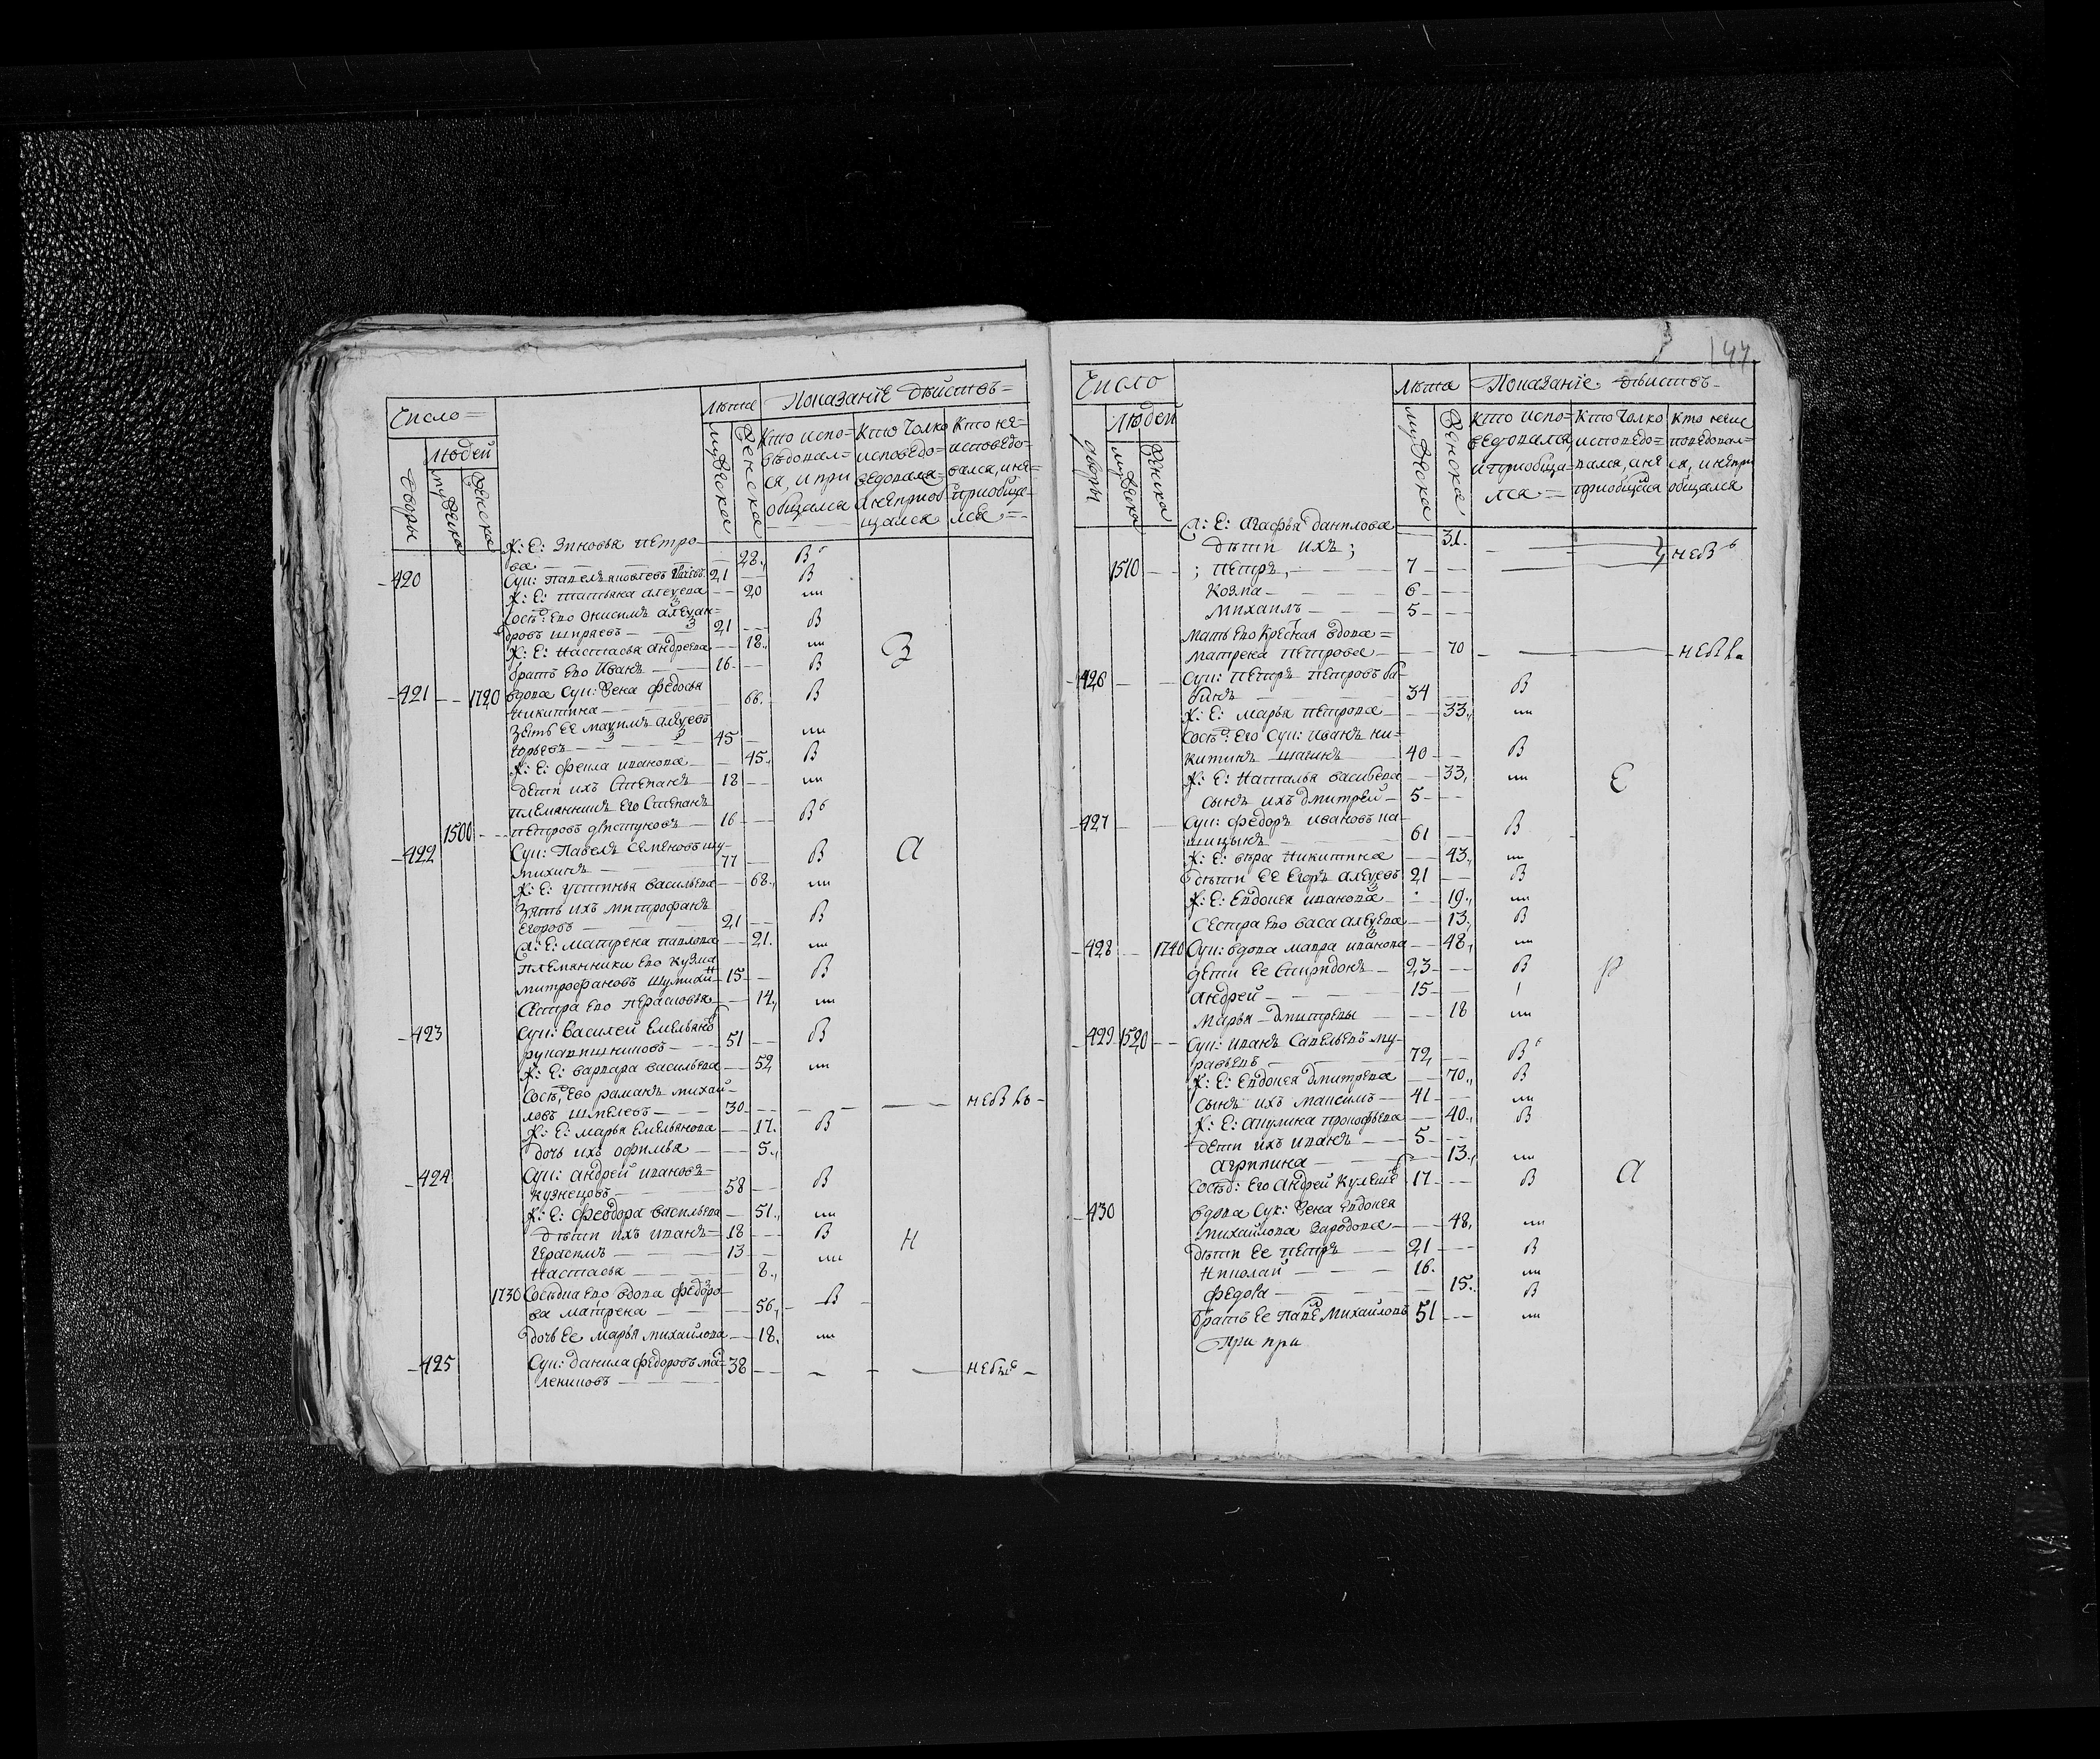 Число=
Лѣта Показанїе Дѣиствъ=
Людей
Дворы
мужеска
женска
мужеска
женска
Кто испо=
вѣдовал=
ся, и при
общался
Кто толко
исповѣдо=
вался
а неприоб
щался
Кто не=
исповѣдо=
вался, и не=
приобща=
лся =
Ж: Е: Зиновья петро
ва — 28. В
420 Суп: Павелъ 21 В
Ж: Е: татьяна алеѯева 20
сосѣ: Его Онисимъ алеѯан=
дровъ ширяевъ 21 В
Ж: Е: Настасья андреева 18.
братъ Его Иванъ 16 В
З
421 1720 вдова Суп: жена федосья
никитина 66. В
зять Ее маѯимъ алеѯеевъ
45
Ж: Е: феκла иванова 45. В
дети ихъ Степанъ 18
племянникъ Его Степанъ
1500 петровъ 16 В
422 Суп: Павелъ Семеновъ шу-
михинъ 77 В
а
Ж: Е: устинья васильева 68.
зять ихъ митрофанъ
Егоровъ 21 В
Ж: Е: матрена павлова 21.
Племянники Его кузма
митрофановъ шумихин 15 В
Сестра Его парасковья 14.
423 Суп: Василей Емельяно
рукавишниковъ 51 В
Ж: Е: варвара васильева 52
Сосѣ: Его раманъ михай
ловъ шмелевъ 30 небылъ
Ж: Е: марья Емельянова 17. В
дочь ихъ офимья 5.
424 Суп: андрей ивановъ
кузнецовъ 58 В
Ж: Е: феодора васильева 51.
Дѣти ихъ иванъ 18 В
Герасимъ 13
Н
Настасья 8.
1730 Сосѣдка Его вдова федоро
ва матрена 56, В
Дочь Ее марья михайлова 18.
425 Суп: данила федоровъ ма-
ленковъ 38
144
Число
Лѣта Показанїе дѣиствъ
Людей
дворы
мужеска
женска
мужеска
женска
Кто испо=
ведовался,
и приобща=
лся =
Кто толко
исповедо=
вался, а не
приобщался
Кто неис
поведовал=
ся, и непри
общался
Ж: Е: Агафья данилова 31.
дѣти ихъ;
1510 петръ, 7
Козма 6
михаилъ 5
мать Его крестная вдова=
матрена петрова 70
426 Суп: петръ петровъ ба-
бинъ 34 В
Ж: Е: марья петрова 33.
Сосѣ: Его Суп: иванъ ни-
китинъ шагинъ 40 В
Ж: Е: Наталья васильева 33.
Е
сынъ ихъ дмитрей 5
427 Суп: федоръ ивановъ па-
шицынъ 61 В
Ж: Е: вѣра никитина 43.
дѣти Ее Егоръ алеѯеевъ 21 В
Ж: Е: Евдокея иванова 19.
Сестра Его васа алеѯева 13. В
428 1740 Суп: вдова мавра иванова 48.
дети Ее Спиридонъ 23 В
р
андрей 15
Марья дмитревы 18
429 1520 Суп: иванъ Савельевъ му-
равьевъ 72, В
Ж: Е: Евдокея дмитрева 70. В
Сынъ ихъ максимъ 41
Ж: Е: акулина прокофьева 40. В
дети ихъ иванъ 5
агрипина 13.
Сосѣд: Его андрей кулеше 17 В
а
430 вдова Суп: жена Евдокея
михайлова 48.
дѣти Ее петръ 21 В
николай 16.
федора 15. В
братъ Ее павел михайловъ 51
При при